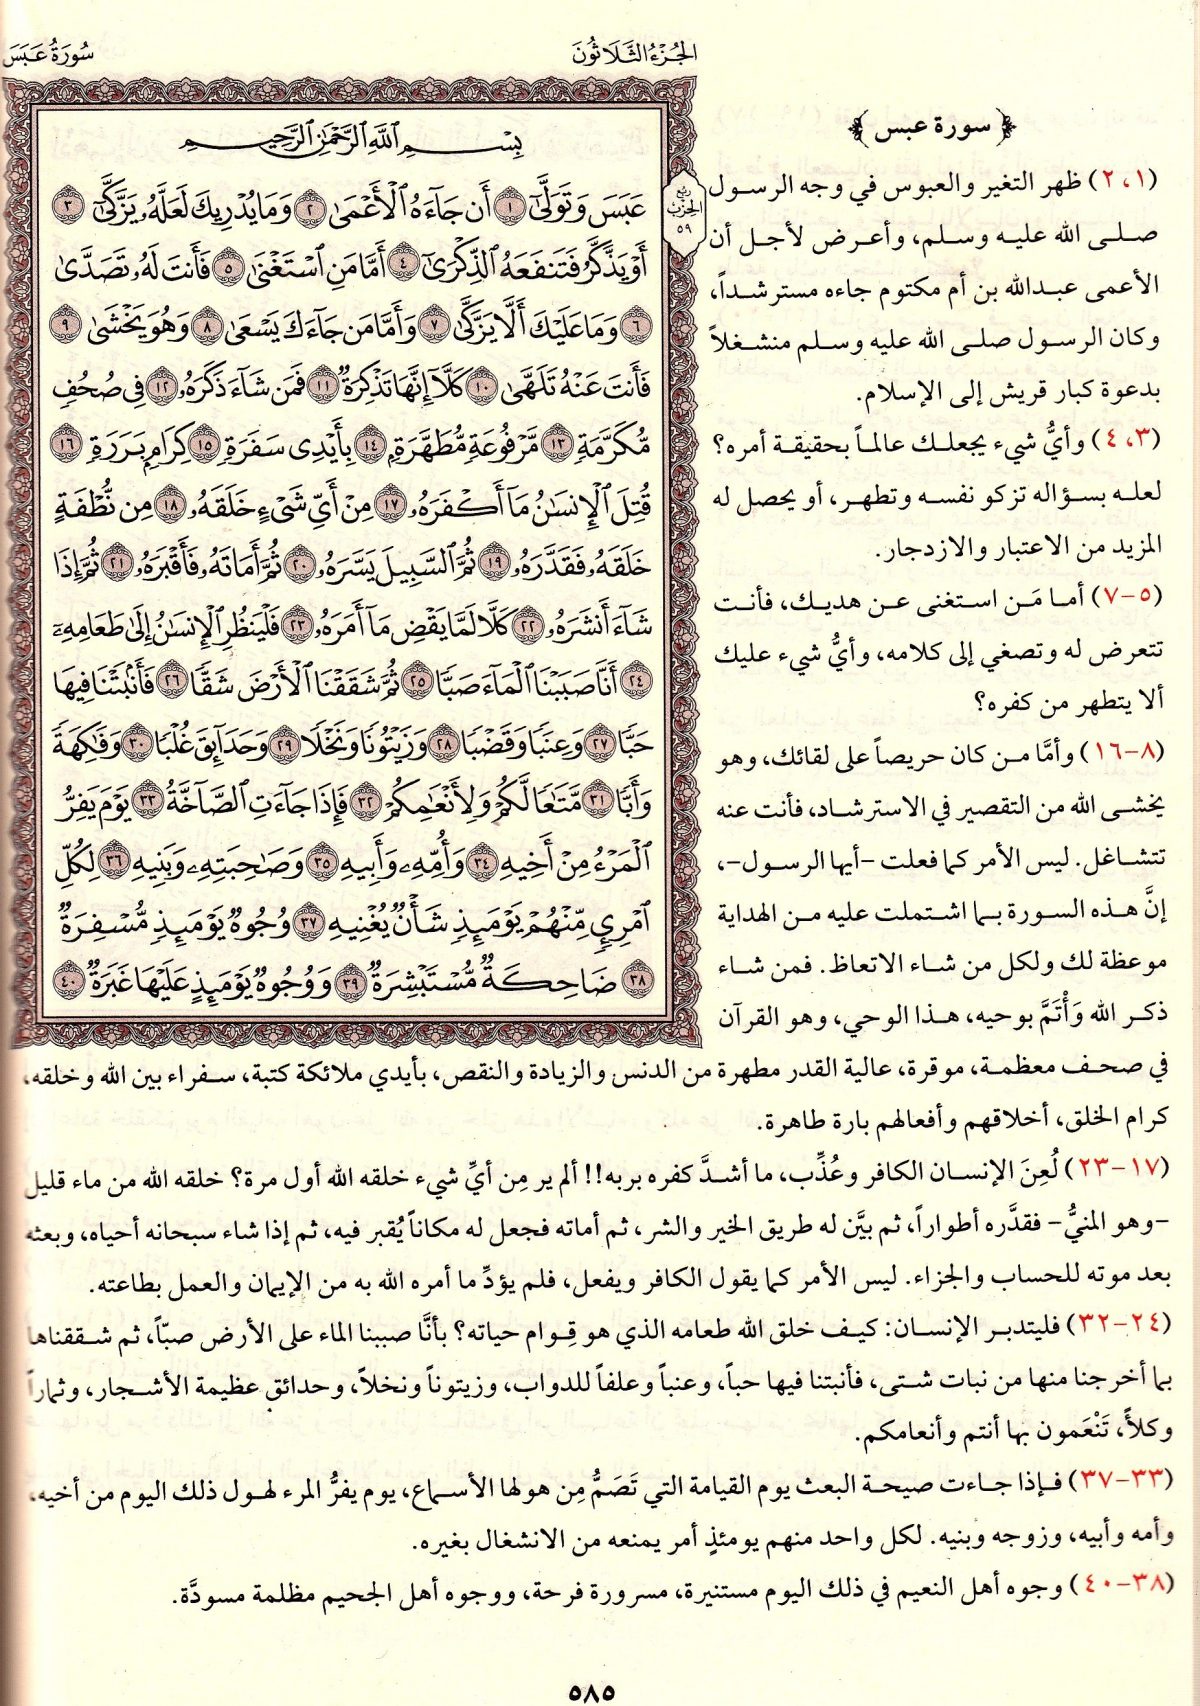 الجُزْءُ الثَّلَاثُونَ
سُورَةُ عَبَسَ
بِسْمِ ٱللَّهِ ٱلرَّحْمَٰنِ ٱلرَّحِيمِ
عَبَسَ وَتَوَلَّىٰٓ ١ أَن جَآءَهُ ٱلْأَعْمَىٰ ٢ وَمَا يُدْرِيكَ لَعَلَّهُۥ يَزَّكَّىٰٓ ٣
أَوْ يَذَّكَّرُ فَتَنفَعَهُ ٱلذِّكْرَىٰٓ ٤ أَمَّا مَنِ ٱسْتَغْنَىٰ ٥ فَأَنتَ لَهُۥ تَصَدَّىٰ
٦ وَمَا عَلَيْكَ أَلَّا يَزَّكَّىٰ ٧ وَأَمَّا مَن جَآءَكَ يَسْعَىٰ ٨ وَهُوَ يَخْشَىٰ ٩
فَأَنتَ عَنْهُ تَلَهَّىٰ ١٠ كَلَّآ إِنَّهَا تَذْكِرَةٌ ١١ فَمَن شَآءَ ذَكَرَهُۥ ١٢ فِى صُحُفٍ
مُّكَرَّمَةٍ ١٣ مَّرْفُوعَةٍ مُّطَهَّرَةٍۭ ١٤ بِأَيْدِى سَفَرَةٍ ١٥ كِرَامٍۭ بَرَرَةٍ ١٦
قُتِلَ ٱلْإِنسَٰنُ مَآ أَكْفَرَهُۥ ١٧ مِنْ أَىِّ شَىْءٍ خَلَقَهُۥ ١٨ مِن نُّطْفَةٍ
خَلَقَهُۥ فَقَدَّرَهُۥ ١٩ ثُمَّ ٱلسَّبِيلَ يَسَّرَهُۥ ٢٠ ثُمَّ أَمَاتَهُۥ فَأَقْبَرَهُۥ ٢١ ثُمَّ إِذَا
شَآءَ أَنشَرَهُۥ ٢٢ كَلَّا لَمَّا يَقْضِ مَآ أَمَرَهُۥ ٢٣ فَلْيَنظُرِ ٱلْإِنسَٰنُ إِلَىٰ طَعَامِهِۦٓ
٢٤ أَنَّا صَبَبْنَا ٱلْمَآءَ صَبًّا ٢٥ ثُمَّ شَقَقْنَا ٱلْأَرْضَ شَقًّا ٢٦ فَأَنۢبَتْنَا فِيهَا
حَبًّا ٢٧ وَعِنَبًا وَقَضْبًا ٢٨ وَزَيْتُونًا وَنَخْلًا ٢٩ وَحَدَآئِقَ غُلْبًا ٣٠ وَفَٰكِهَةً
وَأَبًّا ٣١ مَّتَٰعًا لَّكُمْ وَلِأَنْعَٰمِكُمْ ٣٢ فَإِذَا جَآءَتِ ٱلصَّآخَّةُ ٣٣ يَوْمَ يَفِرُّ
ٱلْمَرْءُ مِنْ أَخِيهِ ٣٤ وَأُمِّهِۦ وَأَبِيهِ ٣٥ وَصَٰحِبَتِهِۦ وَبَنِيهِ ٣٦ لِكُلِّ
ٱمْرِئٍ مِّنْهُمْ يَوْمَئِذٍ شَأْنٌ يُغْنِيهِ ٣٧ وُجُوهٌ يَوْمَئِذٍ مُّسْفِرَةٌ
٣٨ ضَاحِكَةٌ مُّسْتَبْشِرَةٌ ٣٩ وَوُجُوهٌ يَوْمَئِذٍ عَلَيْهَا غَبَرَةٌ ٤٠
ربع
الحزب
٥٩
﴿ سورة عبس ﴾
(١، ٢) ظهر التغير والعبوس في وجه الرسول
صلى الله عليه وسلم، وأعرض لأجل أن
الأعمى عبدالله بن أم مكتوم جاءه مسترشداً،
وكان الرسول صلى الله عليه وسلم منشغلاً
بدعوة كبار قريش إلى الإسلام.
(٣، ٤) وأيُّ شيء يجعلك عالماً بحقيقة أمره؟
لعله بسؤاله تزكو نفسه وتطهر، أو يحصل له
المزيد من الاعتبار والازدجار.
(٥-٧) أما مَن استغنى عن هديك، فأنت
تتعرض له وتصغي إلى كلامه، وأيُّ شيء عليك
ألا يتطهر من كفره؟
(٨-١٦) وأمَّا من كان حريصاً على لقائك، وهو
يخشى الله من التقصير في الاسترشاد، فأنت عنه
تتشاغل. ليس الأمر كما فعلت -أيها الرسول-،
إنَّ هذه السورة بما اشتملت عليه من الهداية
موعظة لك ولكل من شاء الاتعاظ. فمن شاء
ذكر الله وَأْتَمَّ بوحيه، هذا الوحي، وهو القرآن
في صحف معظمة، موقرة، عالية القدر مطهرة من الدنس والزيادة والنقص، بأيدي ملائكة كتبة، سفراء بين الله وخلقه،
كرام الخلق، أخلاقهم وأفعالهم بارة طاهرة.
(١٧-٢٣) لُعِنَ الإنسان الكافر وعُذِّب، ما أشدَّ كفره بربه!! ألم ير مِن أيِّ شيء خلقه الله أول مرة؟ خلقه الله من ماء قليل
-وهو المنيُّ- فقدَّره أطواراً، ثم بيَّن له طريق الخير والشر، ثم أماته فجعل له مكاناً يُقبر فيه، ثم إذا شاء سبحانه أحياه، وبعثه
بعد موته للحساب والجزاء. ليس الأمر كما يقول الكافر ويفعل، فلم يؤدِّ ما أمره الله به من الإيمان والعمل بطاعته.
(٢٤-٣٢) فليتدبر الإنسان: كيف خلق الله طعامه الذي هو قِوام حياته؟ بأنَّا صببنا الماء على الأرض صبّاً، ثم شققناها
بما أخرجنا منها من نبات شتى، فأنبتنا فيها حباً، وعنباً وعلفاً للدواب، وزيتوناً ونخلاً، وحدائق عظيمة الأشجار، وثماراً
وكلأً، تَنْعَمون بها أنتم وأنعامكم.
(٣٣-٣٧) فإذا جاءت صيحة البعث يوم القيامة التي تَصَمُّ مِن هولها الأسماع، يوم يفرُّ المرء لهول ذلك اليوم من أخيه،
وأمه وأبيه، وزوجه وبنيه. لكل واحد منهم يومئذٍ أمر يمنعه من الانشغال بغيره.
(٣٨-٤٠) وجوه أهل النعيم في ذلك اليوم مستنيرة، مسرورة فرحة، ووجوه أهل الجحيم مظلمة مسودَّة.
٥٨٥